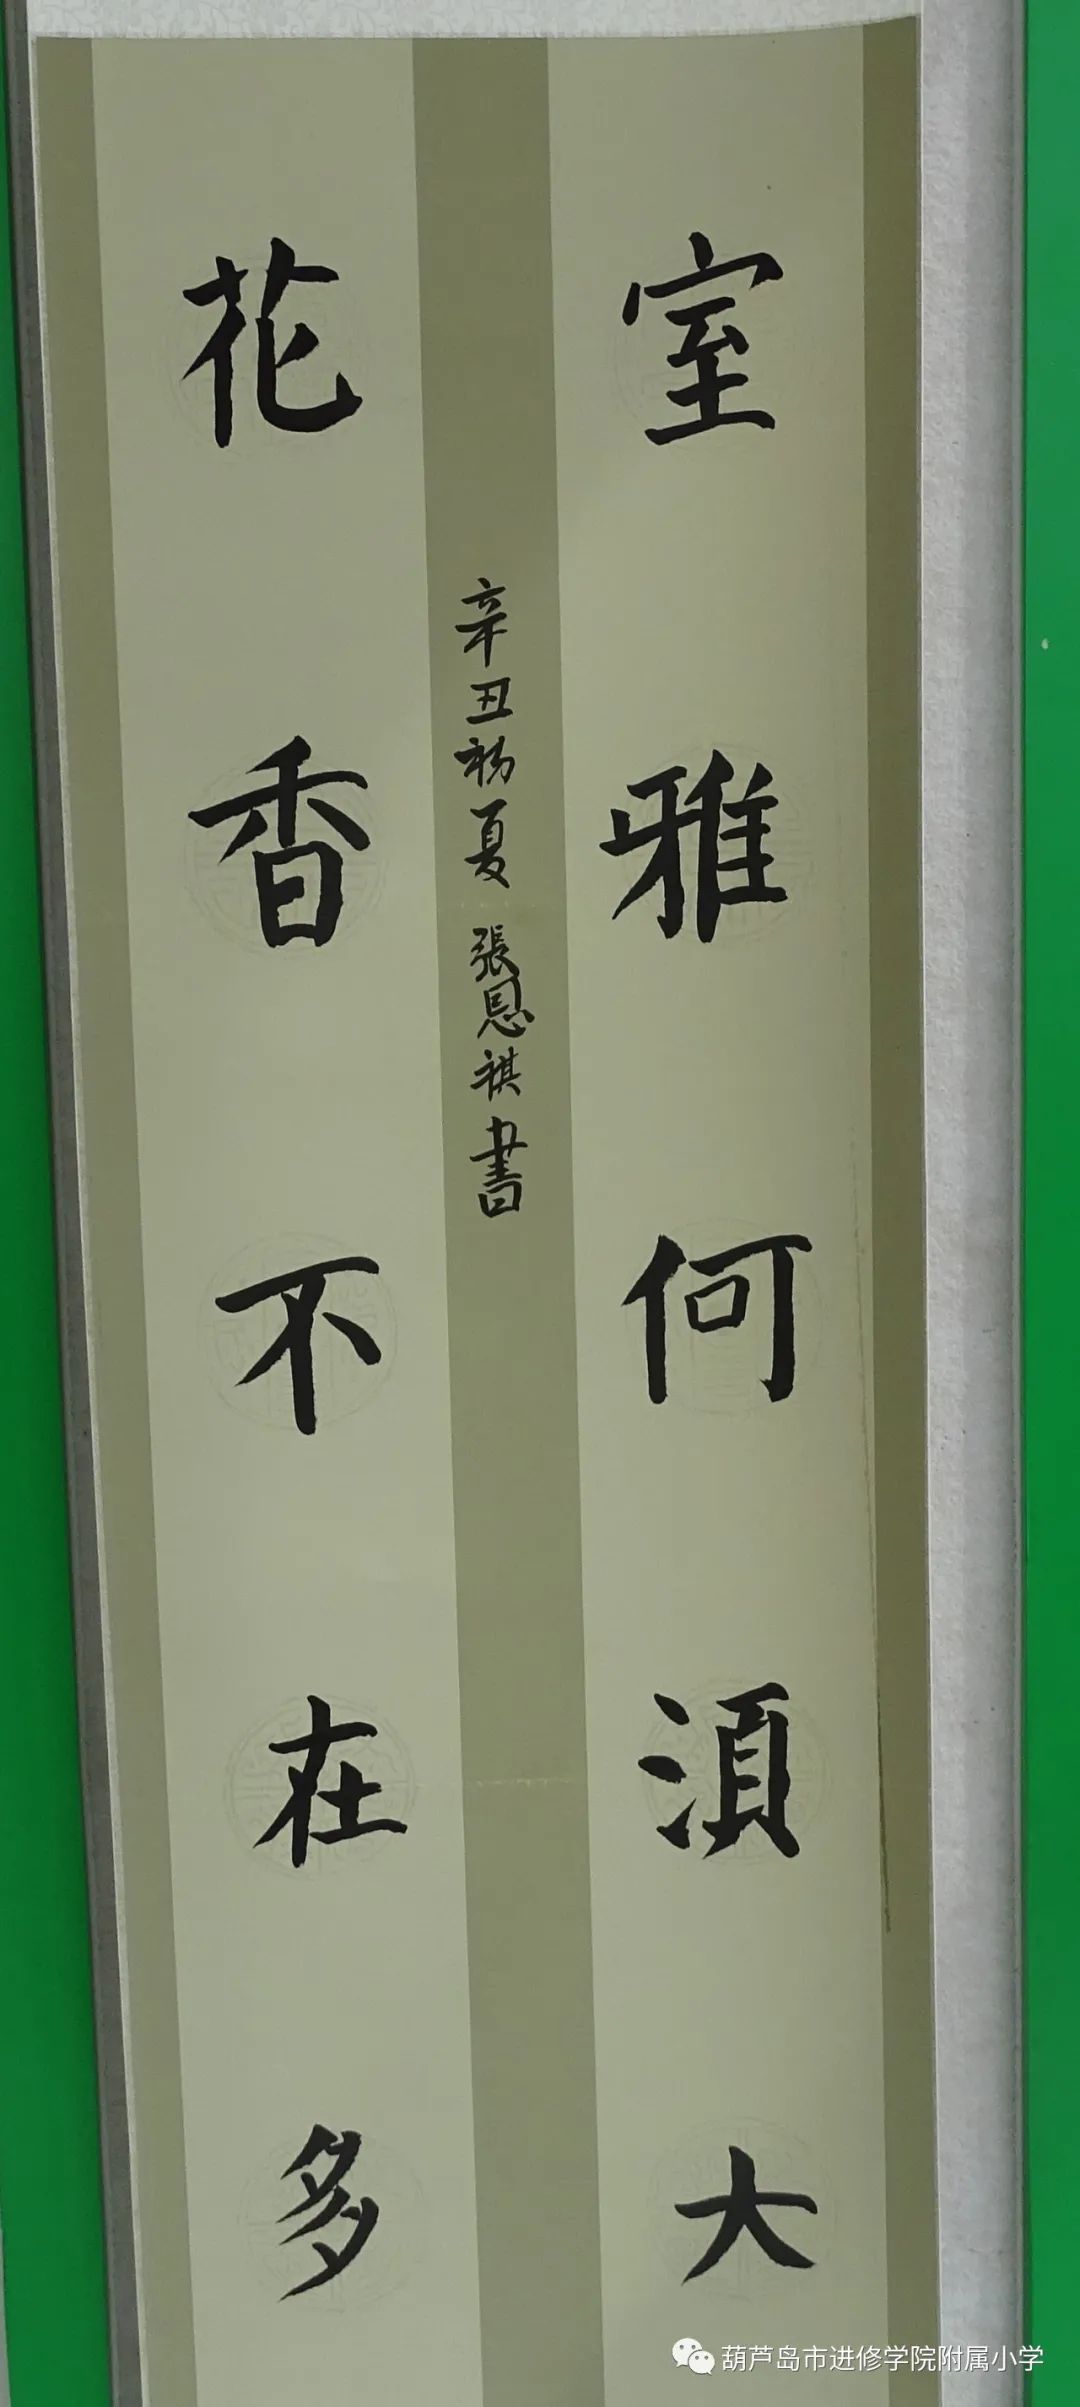 室雅何須大
花香不在多
辛丑初夏 張恩祺書
葫芦岛市进修学院附属小学